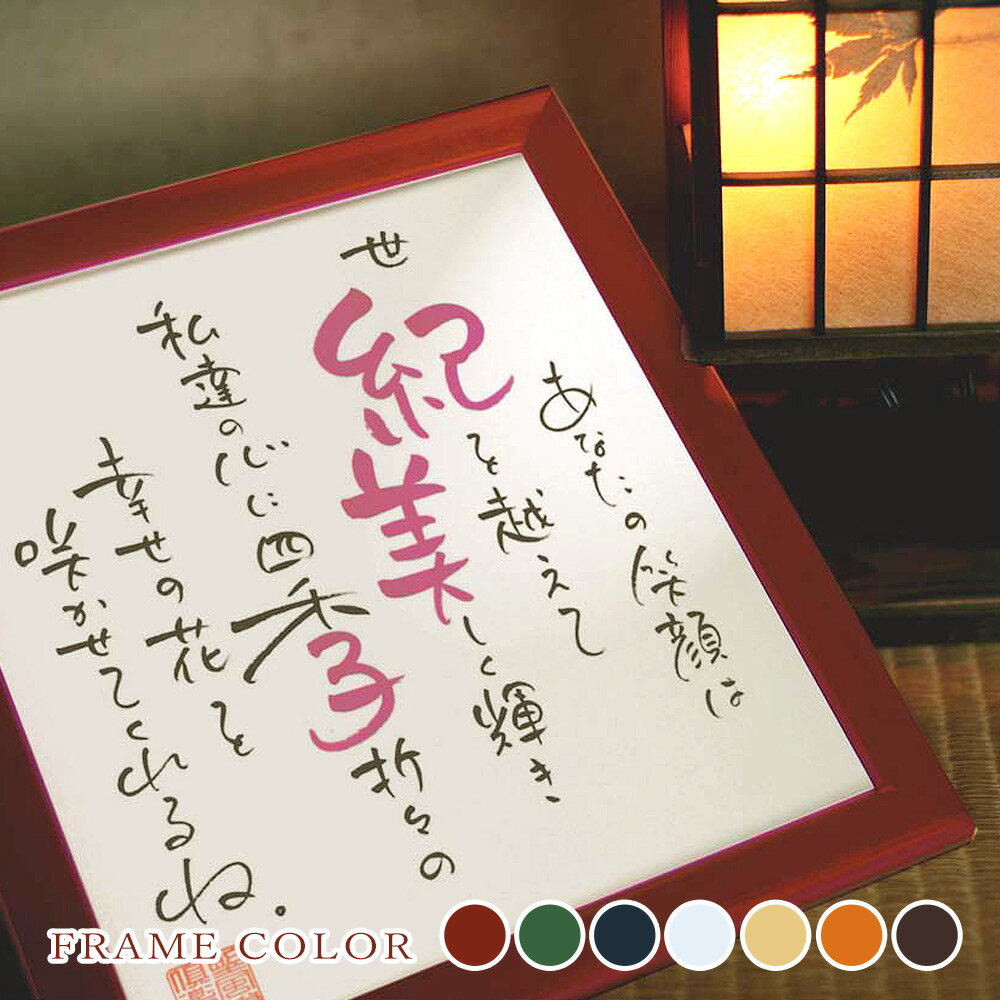 あなたの笑顔は
世紀を越えて
美しく輝き、
私達の心に四季折々の
幸せの花を
咲かせてくれるね。
FRAME COLOR